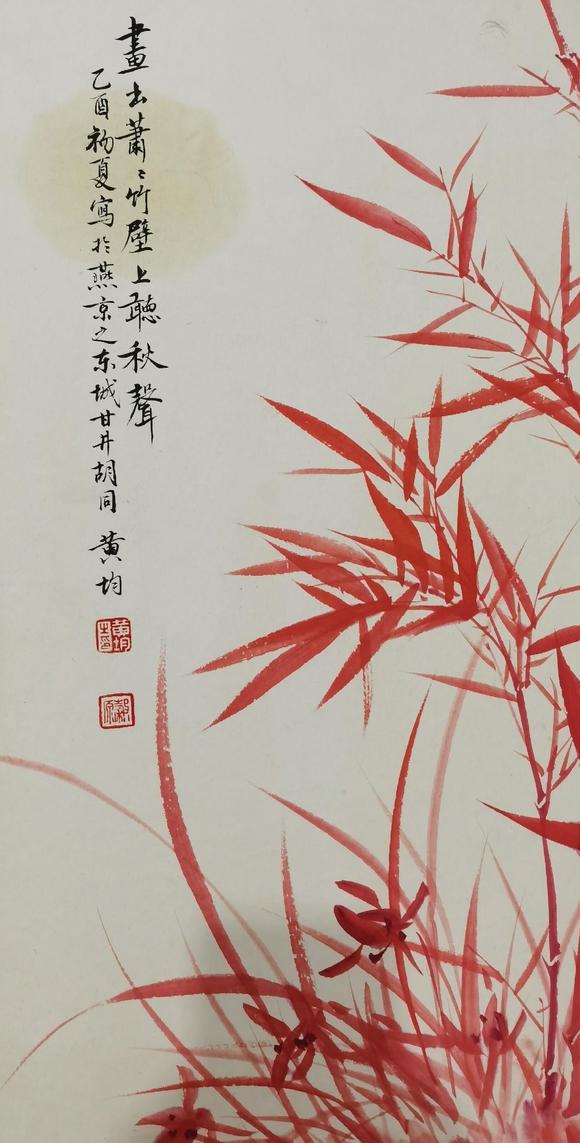 畫出蕭〻竹壁上聽秋聲
乙酉初夏寫於燕京之东城甘井胡同 黄均
黄均之印